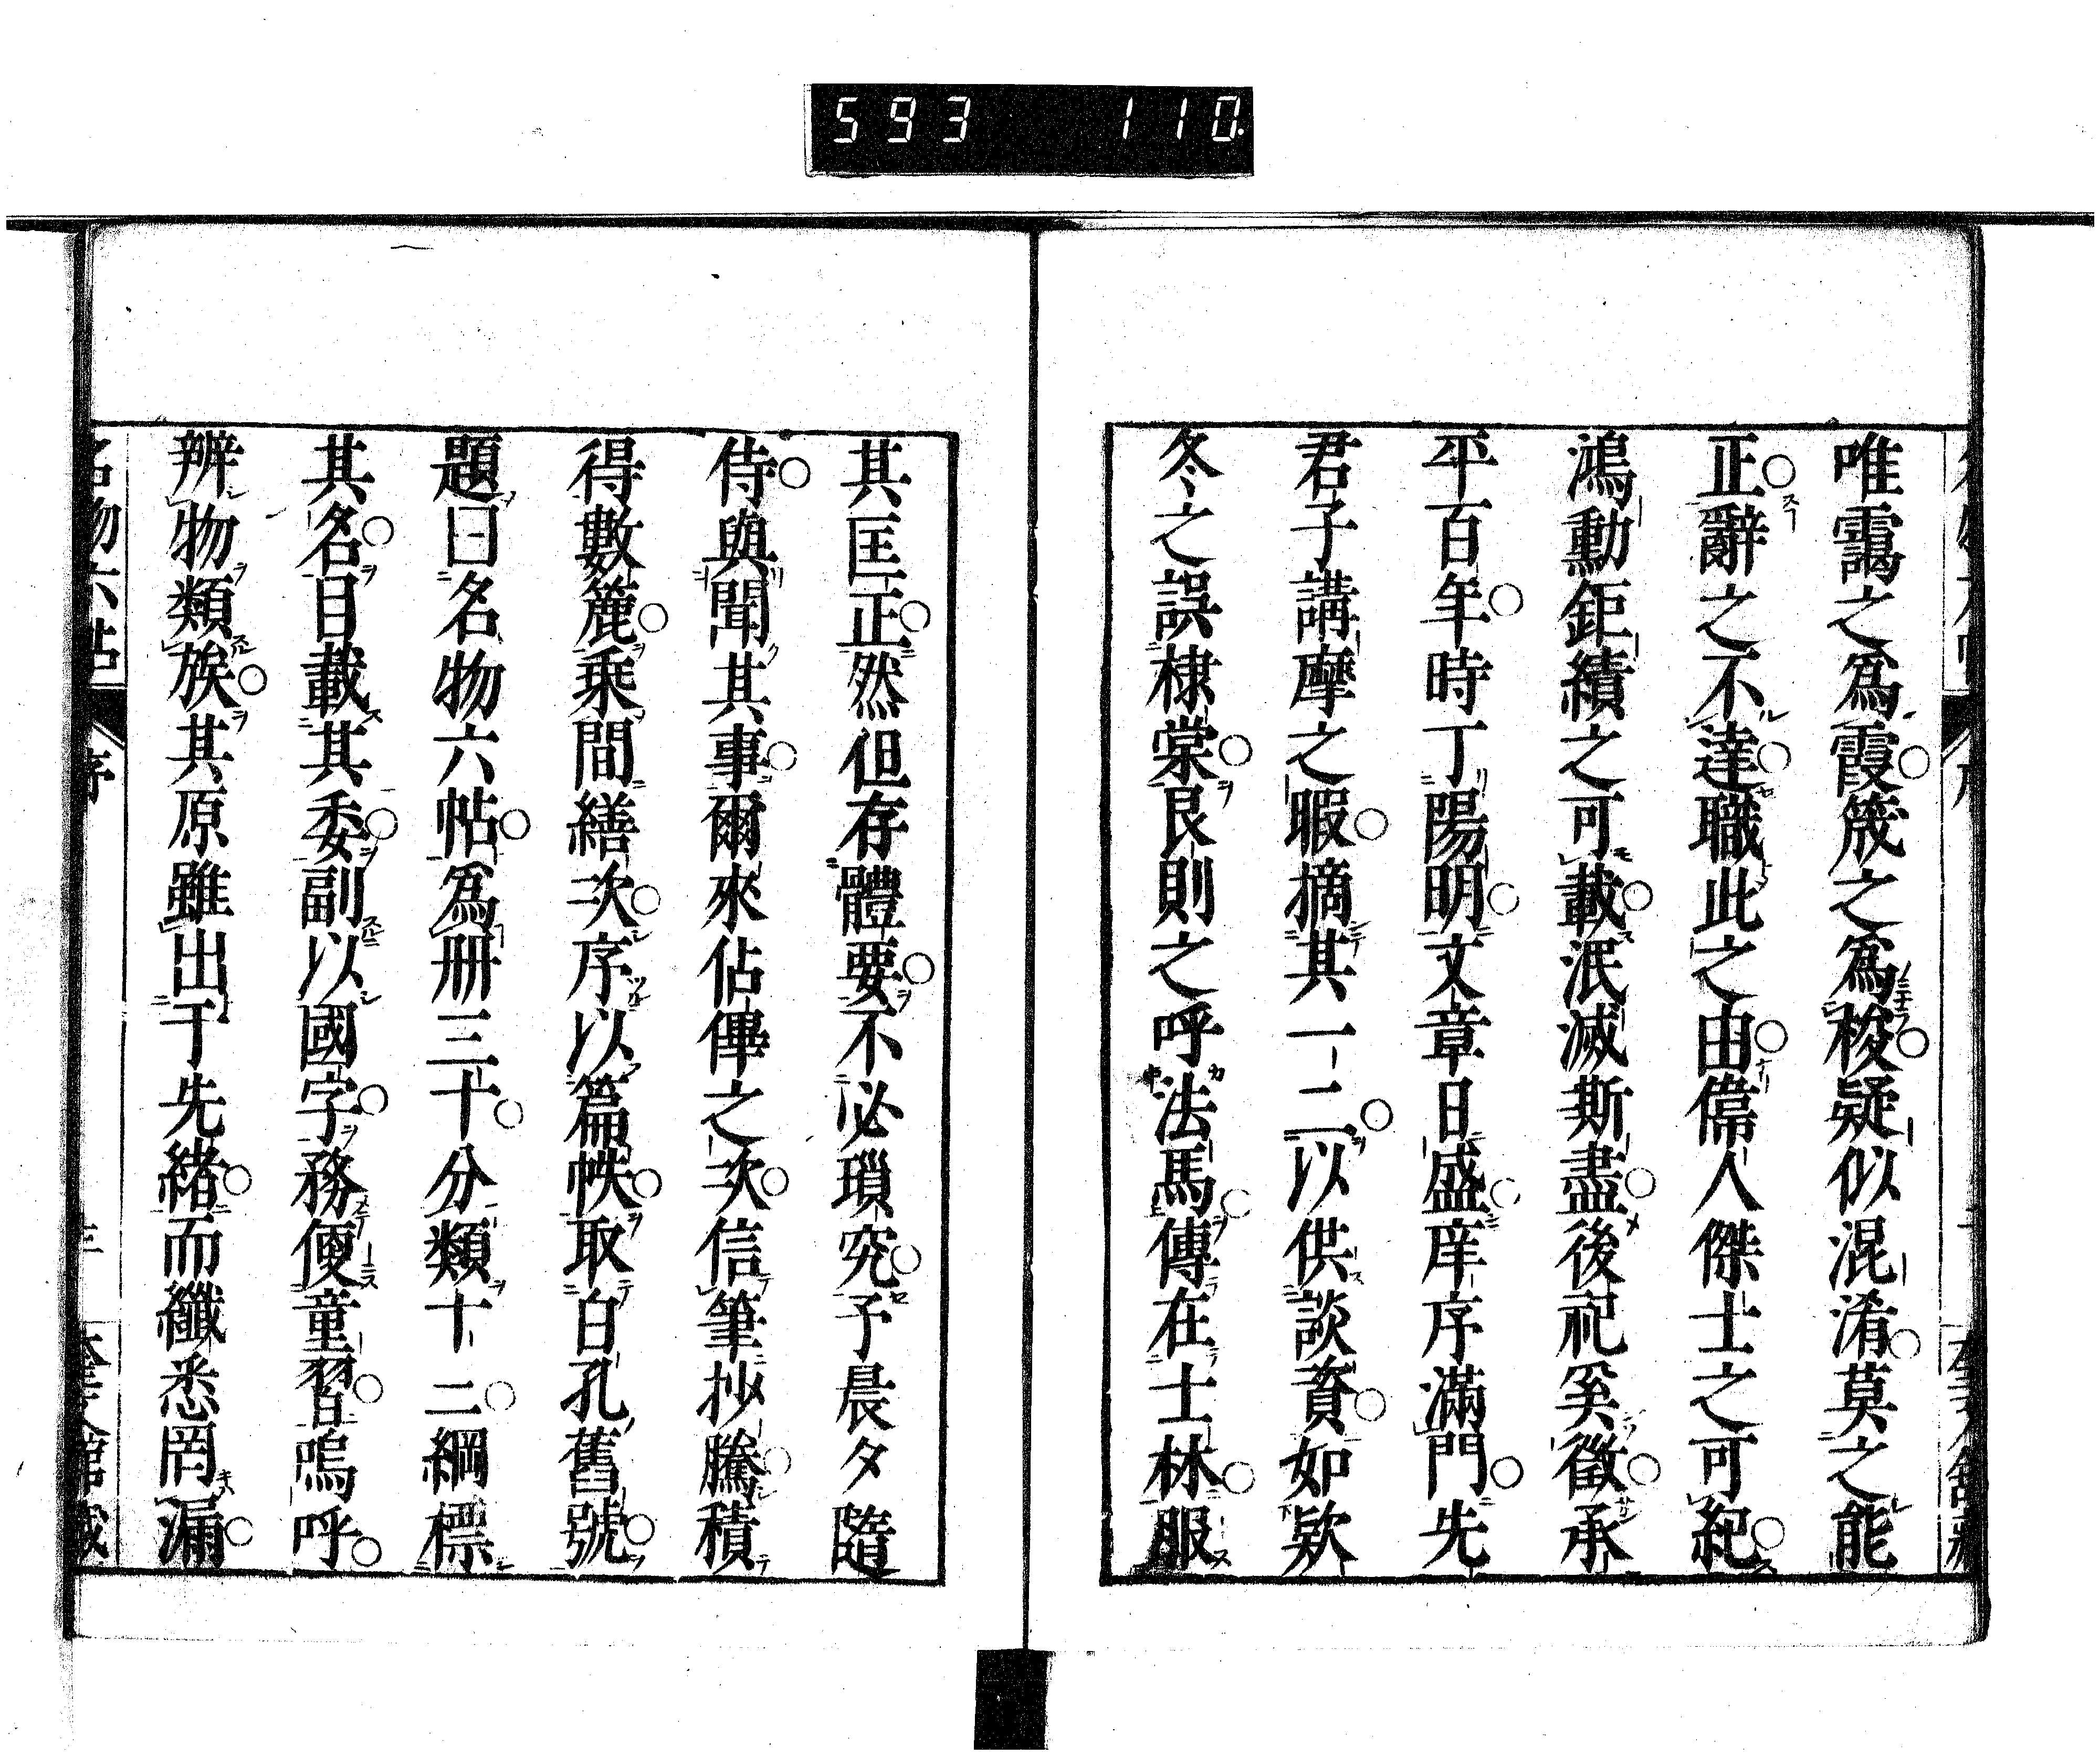 593 110
唯靄之爲霞筬之爲梭疑似混淆莫之能
正辭之不達職此之由偉人傑士之可紀
鴻勳鉅績之可載泯滅斯盡後祀奚徵承
平百年時丁陽明文章日盛庠序滿門先
君子講摩之暇摘其一二以供談資如欵
冬之誤棣棠艮則之呼法馬傳在士林服
其匡正然但存體要不必瑣究予晨夕隨
侍與聞其事爾來佔僤之次信筆抄騰積
得數簏乘間繕次序以篇帙取白孔舊號
題曰名物六帖爲册三十分類十二綱標
其名目載其委副以國字務便童習嗚呼
辨物類族其原雖出于先緒而纖悉罔漏
名物六帖 序